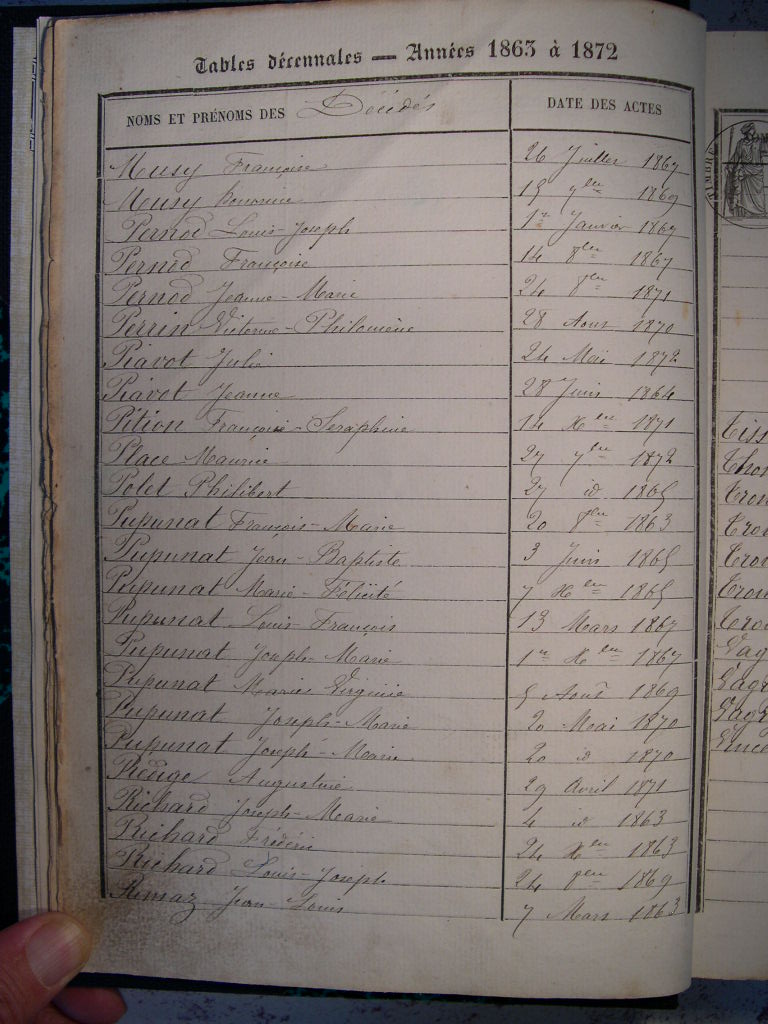 Tables décennales — Années 1863 à 1872
NOMS ET PRÉNOMS DES Décédés
DATE DES ACTES
Musy Françoise 26 Juillet 1867
Musy honorine 15 7bre 1869
Pernod Louis-Joseph 1er Janvier 1867
Pernod Françoise 14 8bre 1867
Pernod Jeanne-Marie 24 8bre 1871
Perrin Victorine-Philomène 28 Aout 1870
Piavot Julie 24 Mai 1872
Piavot Jeanne 28 Juin 1864
Pition Françoise-Séraphine 14 Xbre 1871
Place Maurice 27 7bre 1872
Polet Philibert 27 id 1865
Pupunat François-Marie 20 8bre 1863
Pupunat Jean-Baptiste 3 Juin 1865
Pupunat Marie-Félicité 7 Xbre 1865
Pupunat Louis-François 13 Mars 1867
Pupunat Joseph-Marie 1er Xbre 1867
Pupunat Marie Virginie 5 Août 1869
Pupunat Joseph-Marie 20 Mai 1870
Pupunat Joseph-Marie 20 id 1870
Augustine 29 Avril 1871
Richard Joseph-Marie 4 id 1863
Richard Frédéric 24 Xbre 1863
Richard Louis-Joseph 24 1869
Rimaz Jean-Louis 7 Mars 1863
TIMBRE